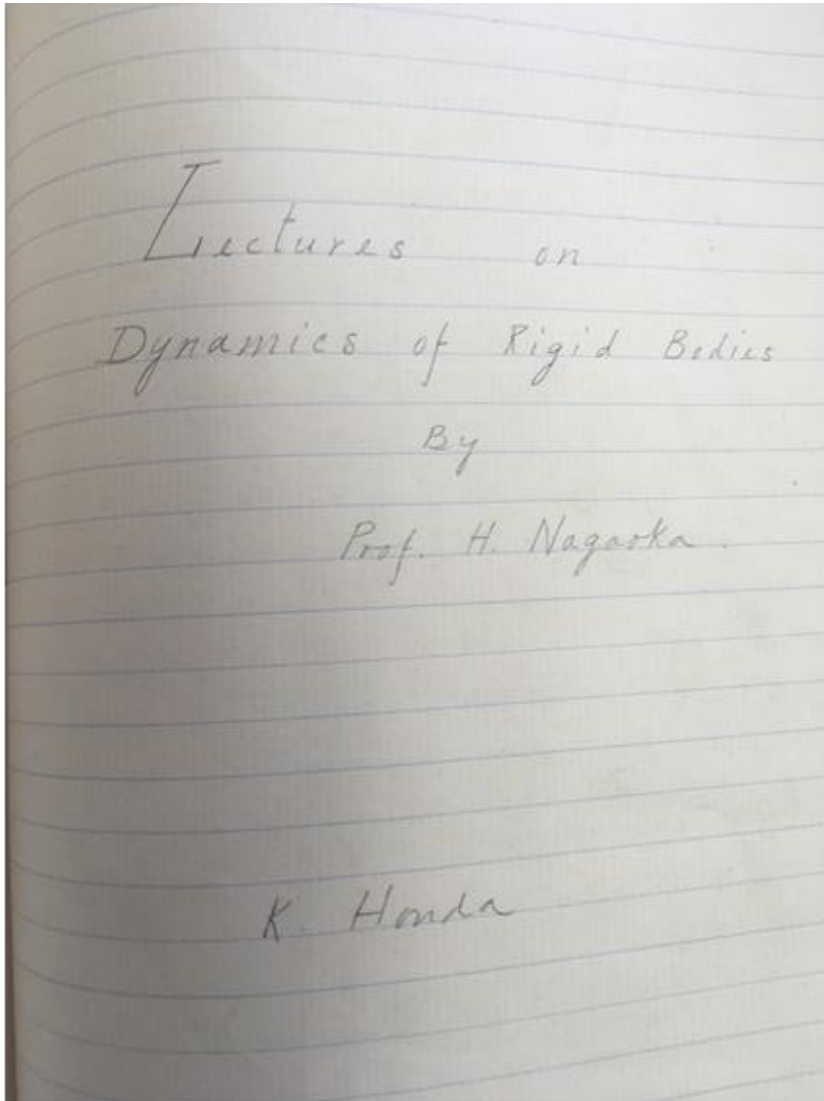 Lectures on
Dynamics of Rigid Bodies
By
Prof. H. Nagaoka.
K. Honda